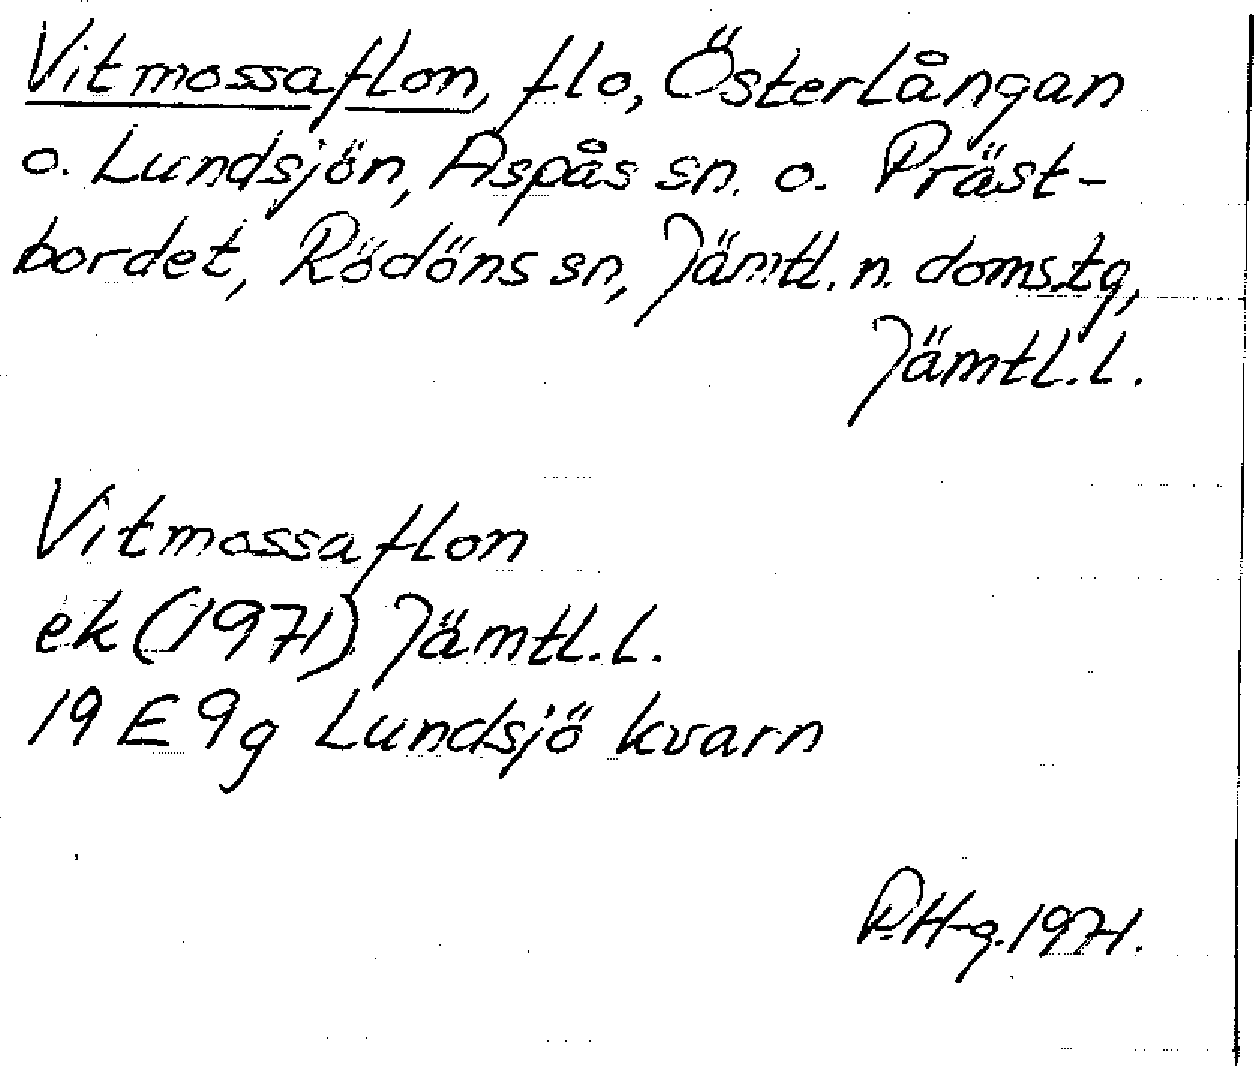 Vitmossaflon, flo, Österlångan
o. Lundsjön, Aspås sn. o. Präst-
bordet, Rödöns sn, Jämtl. n. doms.tg,
Jämtl.l.
Vitmossaflon
ek (1971) Jämtl.l.
19 E 9g Lundsjö kvarn
P.H-g. 1971.